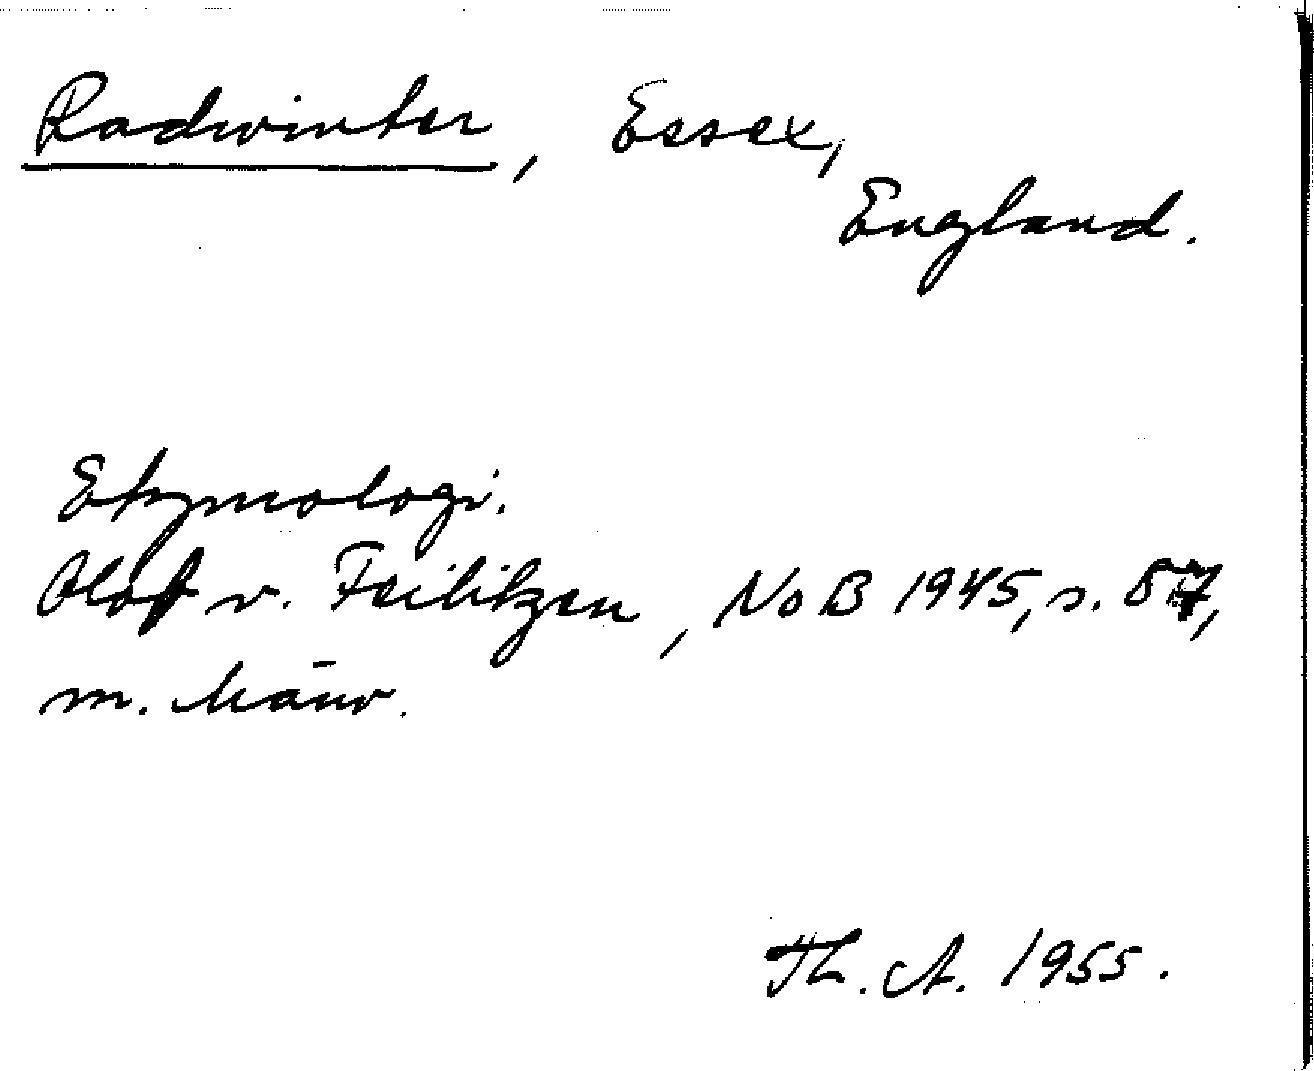 Radwinter, Essex,
England.
Etymologi.
Olof v. Feilitzen, NoB 1945, s. 87,
m. hänv.
Th. A. 1955.